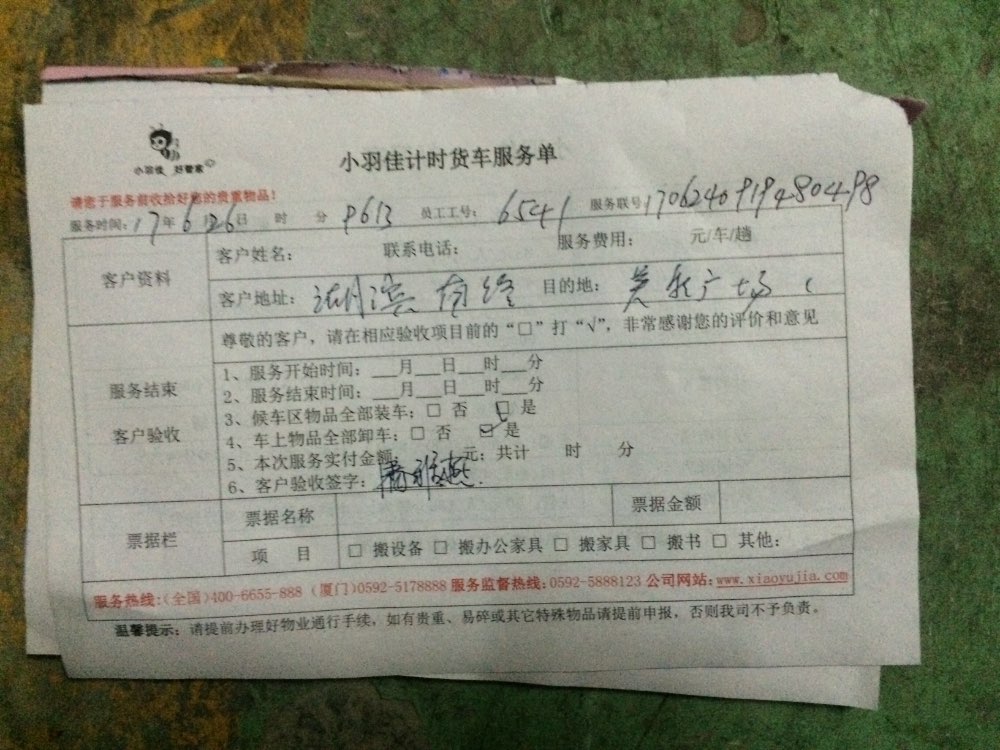 小羽佳 好管家
小羽佳计时货车服务单
请您于服务前收拾好您的贵重物品！
服务时间：17年6月26日 时 分 9613 员工工号：6541 服务联号17062409194804498
客户资料
客户姓名： 联系电话： 服务费用： 元/车/趟
客户地址：湖滨南路 目的地： 广场
服务结束
客户验收
尊敬的客户，请在相应验收项目前的“□”打“√”，非常感谢您的评价和意见
1、服务开始时间：___月___日___时___分
2、服务结束时间：___月___日___时___分
3、候车区物品全部装车：□ 否 □ 是
4、车上物品全部卸车：□ 否 □ 是
5、本次服务实付金额： 元；共计 时 分
6、客户验收签字：
票据栏
票据名称 票据金额
项 目 □ 搬设备 □ 搬办公家具 □ 搬家具 □ 搬书 □ 其他：
服务热线：(全国)400-6655-888 (厦门)0592-5178888 服务监督热线：0592-5888123 公司网站：www.xiaoyujia.com
温馨提示：请提前办理好物业通行手续，如有贵重、易碎或其它特殊物品请提前申报，否则我司不予负责。